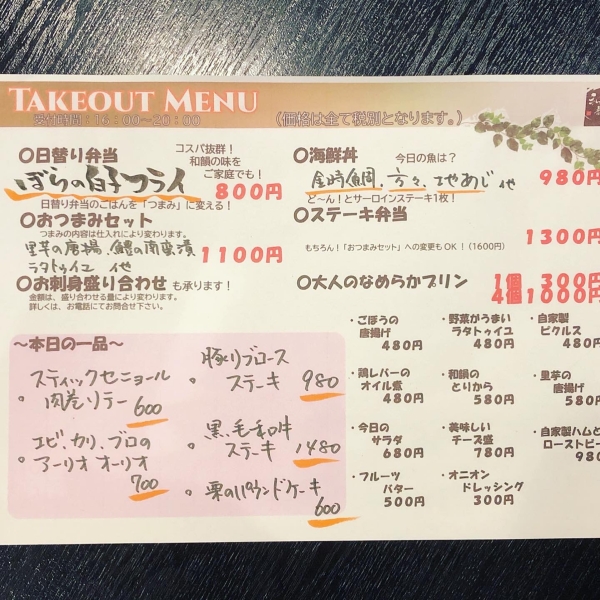 TAKEOUT MENU
受付時間：16：00〜20：00
（価格は全て税別となります。）
○日替り弁当
コスパ抜群！
和韻の味を
ご家庭でも！
ぼらの白子フライ
800円
日替り弁当のごはんを「つまみ」に変える！
○おつまみセット
つまみの内容は仕入れにより変わります。
里芋の唐揚、鱧の南蛮漬
ラタトゥイユ 他
1100円
○お刺身盛り合わせ も承ります！
金額は、盛り合わせる量により変わります。
詳しくは、お電話にてお問合せ下さい。
○海鮮丼
今日の魚は？
金時鯛、方々、地あじ 他
980円
ど〜ん！とサーロインステーキ1枚！
○ステーキ弁当
1300円
もちろん！「おつまみセット」への変更もOK！（1600円）
○大人のなめらかプリン
1個 300円
4個1000円
〜本日の一品〜
スティックセニョール
肉巻ソテー 600
エビ、カリ、ブロの
アーリオオーリオ
700
豚肩ロース
ステーキ 980
黒毛和牛
ステーキ 1480
栗のパウンドケーキ
600
・ごぼうの
唐揚げ
480円
・野菜がうまい
ラタトゥイユ
480円
・自家製
ピクルス
480円
・鶏レバーの
オイル煮
480円
・和韻の
とりから
580円
・里芋の
唐揚げ
580円
・今日の
サラダ
680円
・美味しい
チーズ盛
780円
・自家製ハムと
ローストビー
980
・フルーツ
バター
500円
・オニオン
ドレッシング
300円